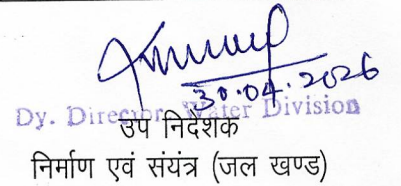 30.04.2026
Dy. Director, Water Division
उप निदेशक
निर्माण एवं संयंत्र (जल खण्ड)